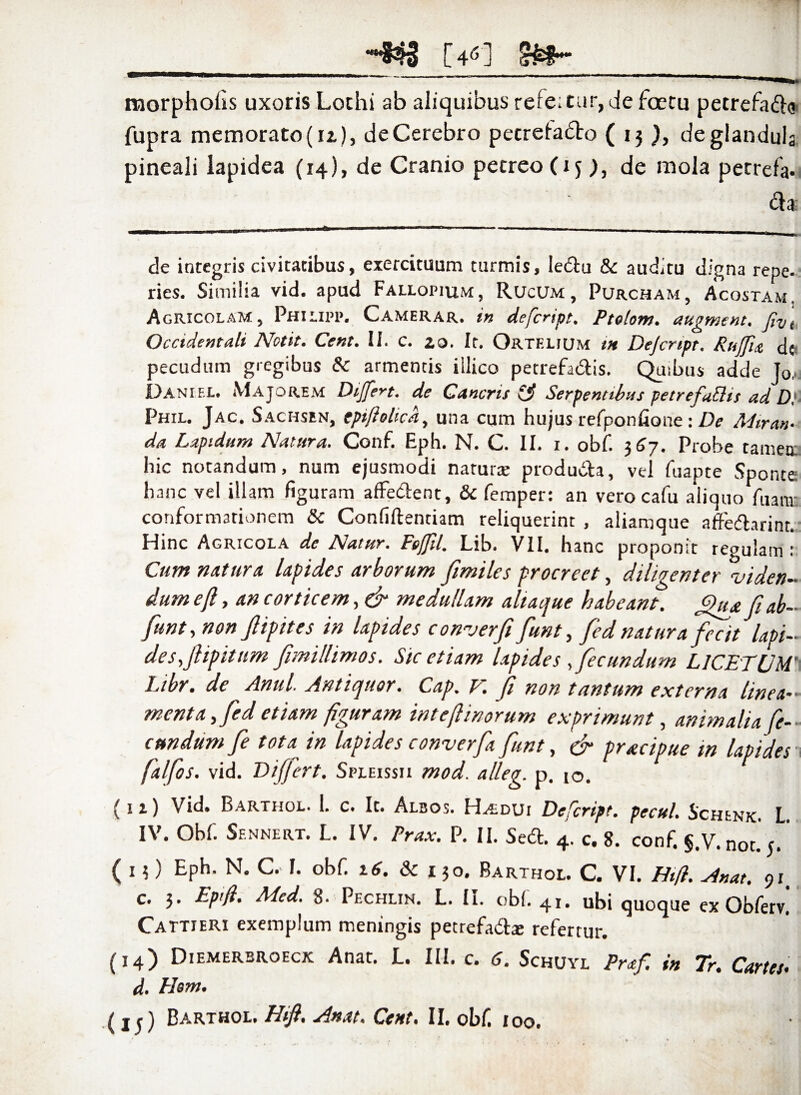 [46]
morphosis uxoris Lothi ab aliquibus refertur, de fœtu petrefacto
supra memorato (12), de Cerebro petrefacto ( 13 ), de glandula
pineali lapidea (14), de Cranio petreo (15), de mola petrefa-
cta
de integris civitatibus, exercituum turmis, lectu & auditu digna repe-
ries. Similia vid. apud FALLOPIUM, RUCUM, PURCHAM, ACOSTAM,
AGRICOLAM, PHILIPP. CAMERAR. in descript. Ptolom. augment. sive
Occidentali Notit. Cent. II. c. 20. It. ORTELIUM in Descript. Russiæ de
pecudum gregibus & armentis illico petrefactis. Quibus adde Jo.
DANIEL. MAJOREM Dissert. de Cancris & Serpentibus petrefactis ad D.
PHIL. JAC. SACHSEN, epistolicâ, una cum hujus responsione : De Miran-
da Lapidum Natura. Conf. Eph. N. C. II. 1. obs. 367. Probe tamen
hic notandum, num ejusmodi naturæ producta, vel suapte Sponte
hanc vel illam figuram affectent, & semper: an vero casu aliquo suam
conformationem & Consistentiam reliquerint , aliamque affectarint.
Hinc AGRICOLA de Natur. Fossil. Lib. VII. hanc proponit regulam :
Cum natura lapides arborum similes procreet, diligenter viden-
dum est, an corticem, & medullam aliaque habeant. Quæ si ab-
sunt, non stipites in lapides conversi sunt, sed natura fecit lapi-
des, stipitum simillimos. Sic etiam lapides, secundum LICETUM
Libr. de Anul. Antiquor. Cap. V. si non tantum externa linea-
menta, sed etiam figuram intestinorum exprimunt, animalia se-
cundum se tota in lapides conversa sunt, & præcipue in lapides
falsos. vid. Dissert. SPLEISSII mod. alleg. p. 10.
(12) Vid. BARTHOL. l. c. It. ALBOS. HÆDUI Descript. pecul. SCHENK. L.
IV. Obs. SENNERT. L. IV. Prax. P. II. Sect. 4. c. 8. conf. §.V. not. 5.
(13) Eph. N. C. I. obs. 26. & 130. BARTHOL. C. VI. Hist. Anat. 91.
c. 3. Epist. Med. 8. PECHLIN. L. II. obs. 41. ubi quoque ex Observ.
CATTIERI exemplum meningis petrefactæ refertur.
(14) DIEMERBROECK Anat. L. III. c. 6. SCHUYL Præf. in Tr. Cartes.
d. Hom.
(15) BARTHOL. Hist. Anat. Cent. II. obs. 100.